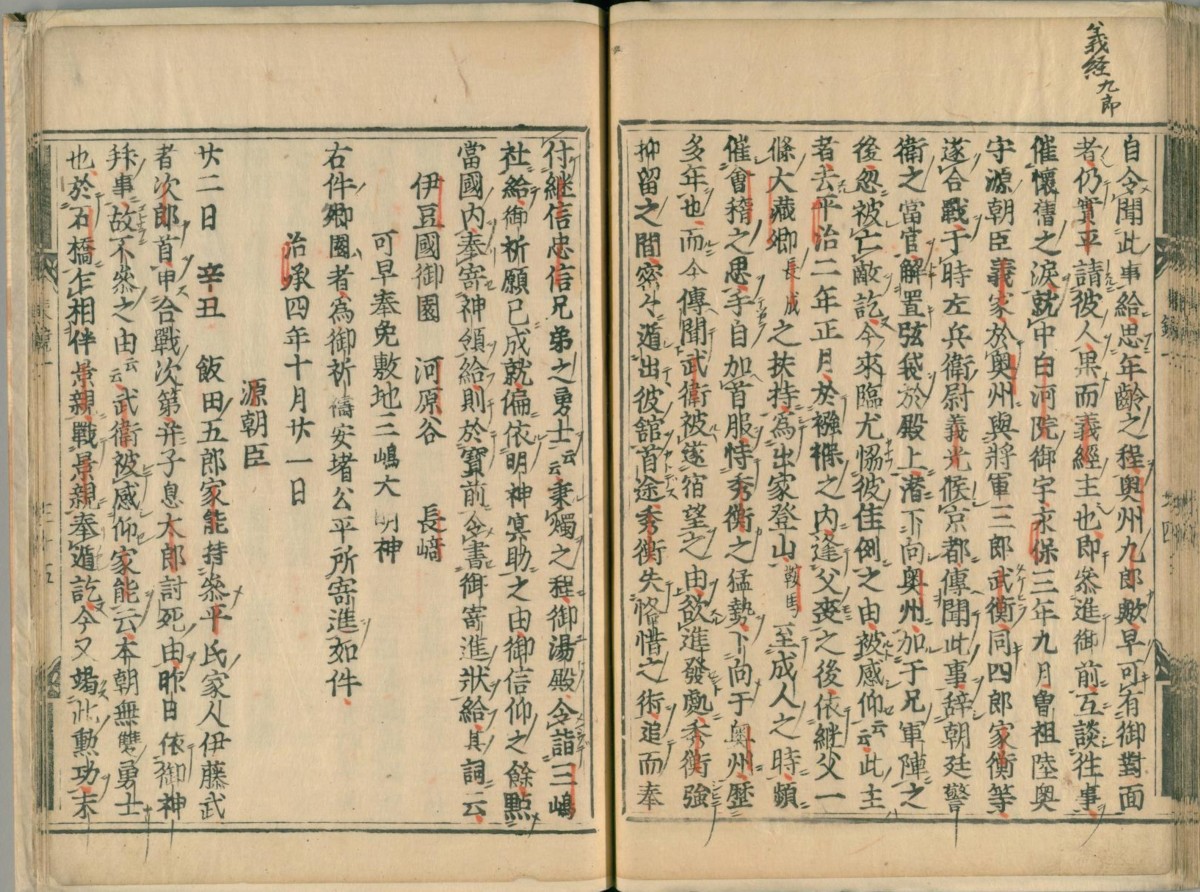 義経九郎
自令聞此事給思年齡之程奥州九郎歟早可有御對面
者仍實平請彼人果而義經主也即參進御前互談徃事
催懷舊之涙就中白河院御宇永保三年九月曾祖陸奥
守源朝臣義家於奥州與將軍三郎武衡同四郎家衡等
遂合戰于時左兵衛尉義光候京都傳聞此事辞朝廷警
衛之當官解置弦袋於殿上潜下向奥州加于兄軍陣之
後忽被亡敵訖今來臨尤恊彼佳例之由被感仰云云此主
者去平治二年正月於襁褓之内逢父喪之後依継父一
條大藏卿長成之扶持為出家登山鞍馬至成人之時頻
催會稽之思手自加首服恃秀衡之猛勢下向于奥州歴
多年也而今傳聞武衛被遂宿望之由欲進發處秀衡強
抑留之間密々遁出彼舘首途秀衡失恡惜之術追而奉
付継信忠信兄弟之勇士云云秉燭之程御湯殿令詣三嶋
社給御祈願已成就偏依明神冥助之由御信仰之餘點
當國内奉寄神領給則於寶前令書御寄進状給其詞云
伊豆國御園　河原谷　長﨑
可早奉免敷地三嶋大明神
右件御園者為御祈禱安堵公平所寄進如件
治承四年十月廿一日
源朝臣
廿二日　辛丑　飯田五郎家能持參平氏家人伊藤武
者次郎首申合戰次第并子息太郎討死由昨日依御神
拜事故不參之由云云武衛被感仰家能云本朝無雙勇士
也於石橋乍相伴景親戰景親奉遁訖今又竭此勲功末